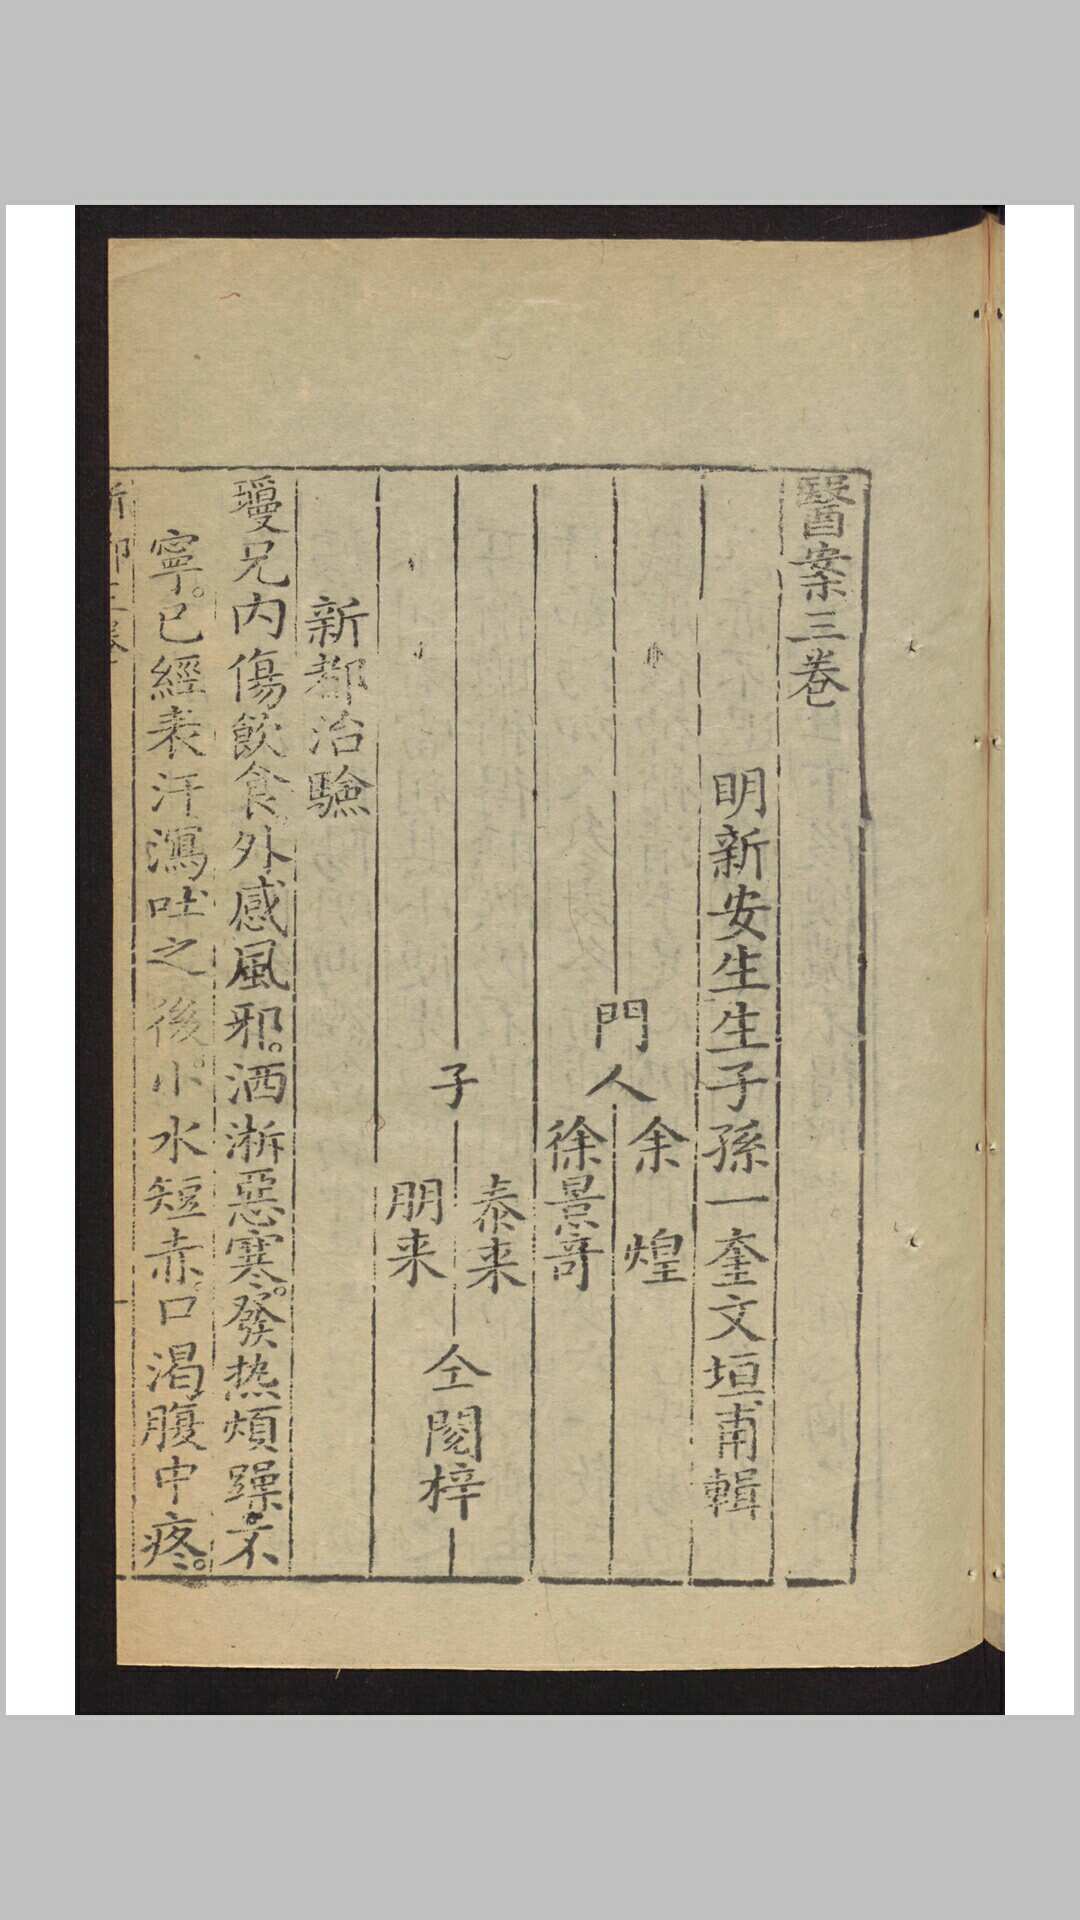 醫案三卷
明新安生生子孫一奎文垣甫輯
門人余煌
徐景奇
子泰来
朋来
仝閱梓
新都治驗
瓊兄内傷飲食外感風邪。洒淅惡寒。發热煩躁。不
寧。已經表汗瀉吐之後。小水短赤。口渴腹中疼。